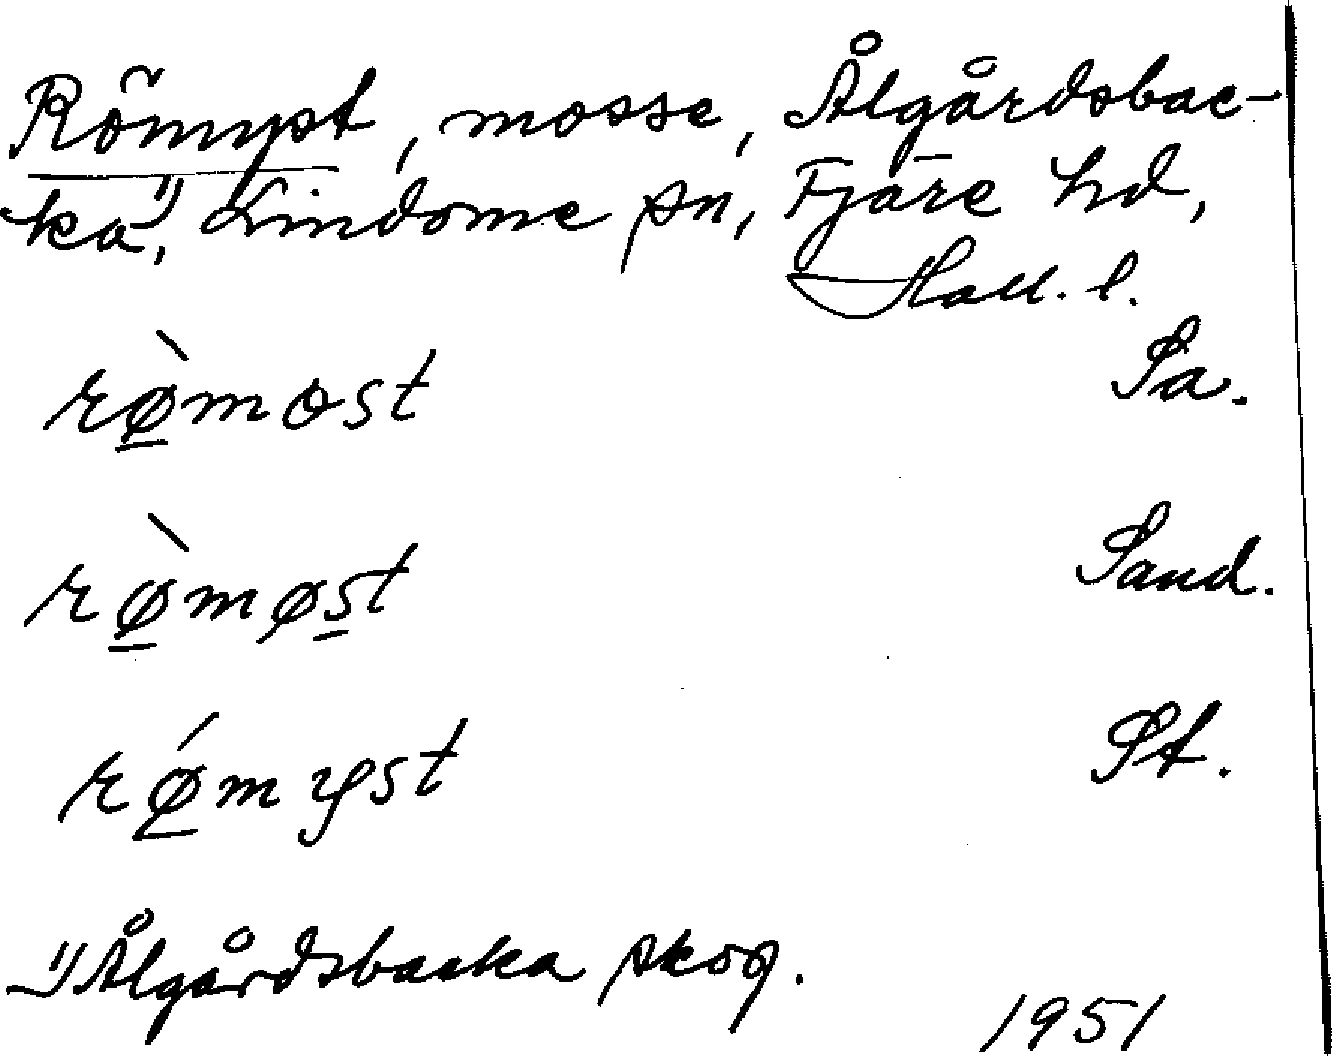 Römyst, mosse, Ålgårdsbac-
ka¹⁾, Lindome sn, Fjäre hd,
Hall. l.
rø̲̀most Sa.
rø̲̀møs̲t Sand.
rǿ̲myst St.
¹⁾ Ålgårdsbacka skog.
1951